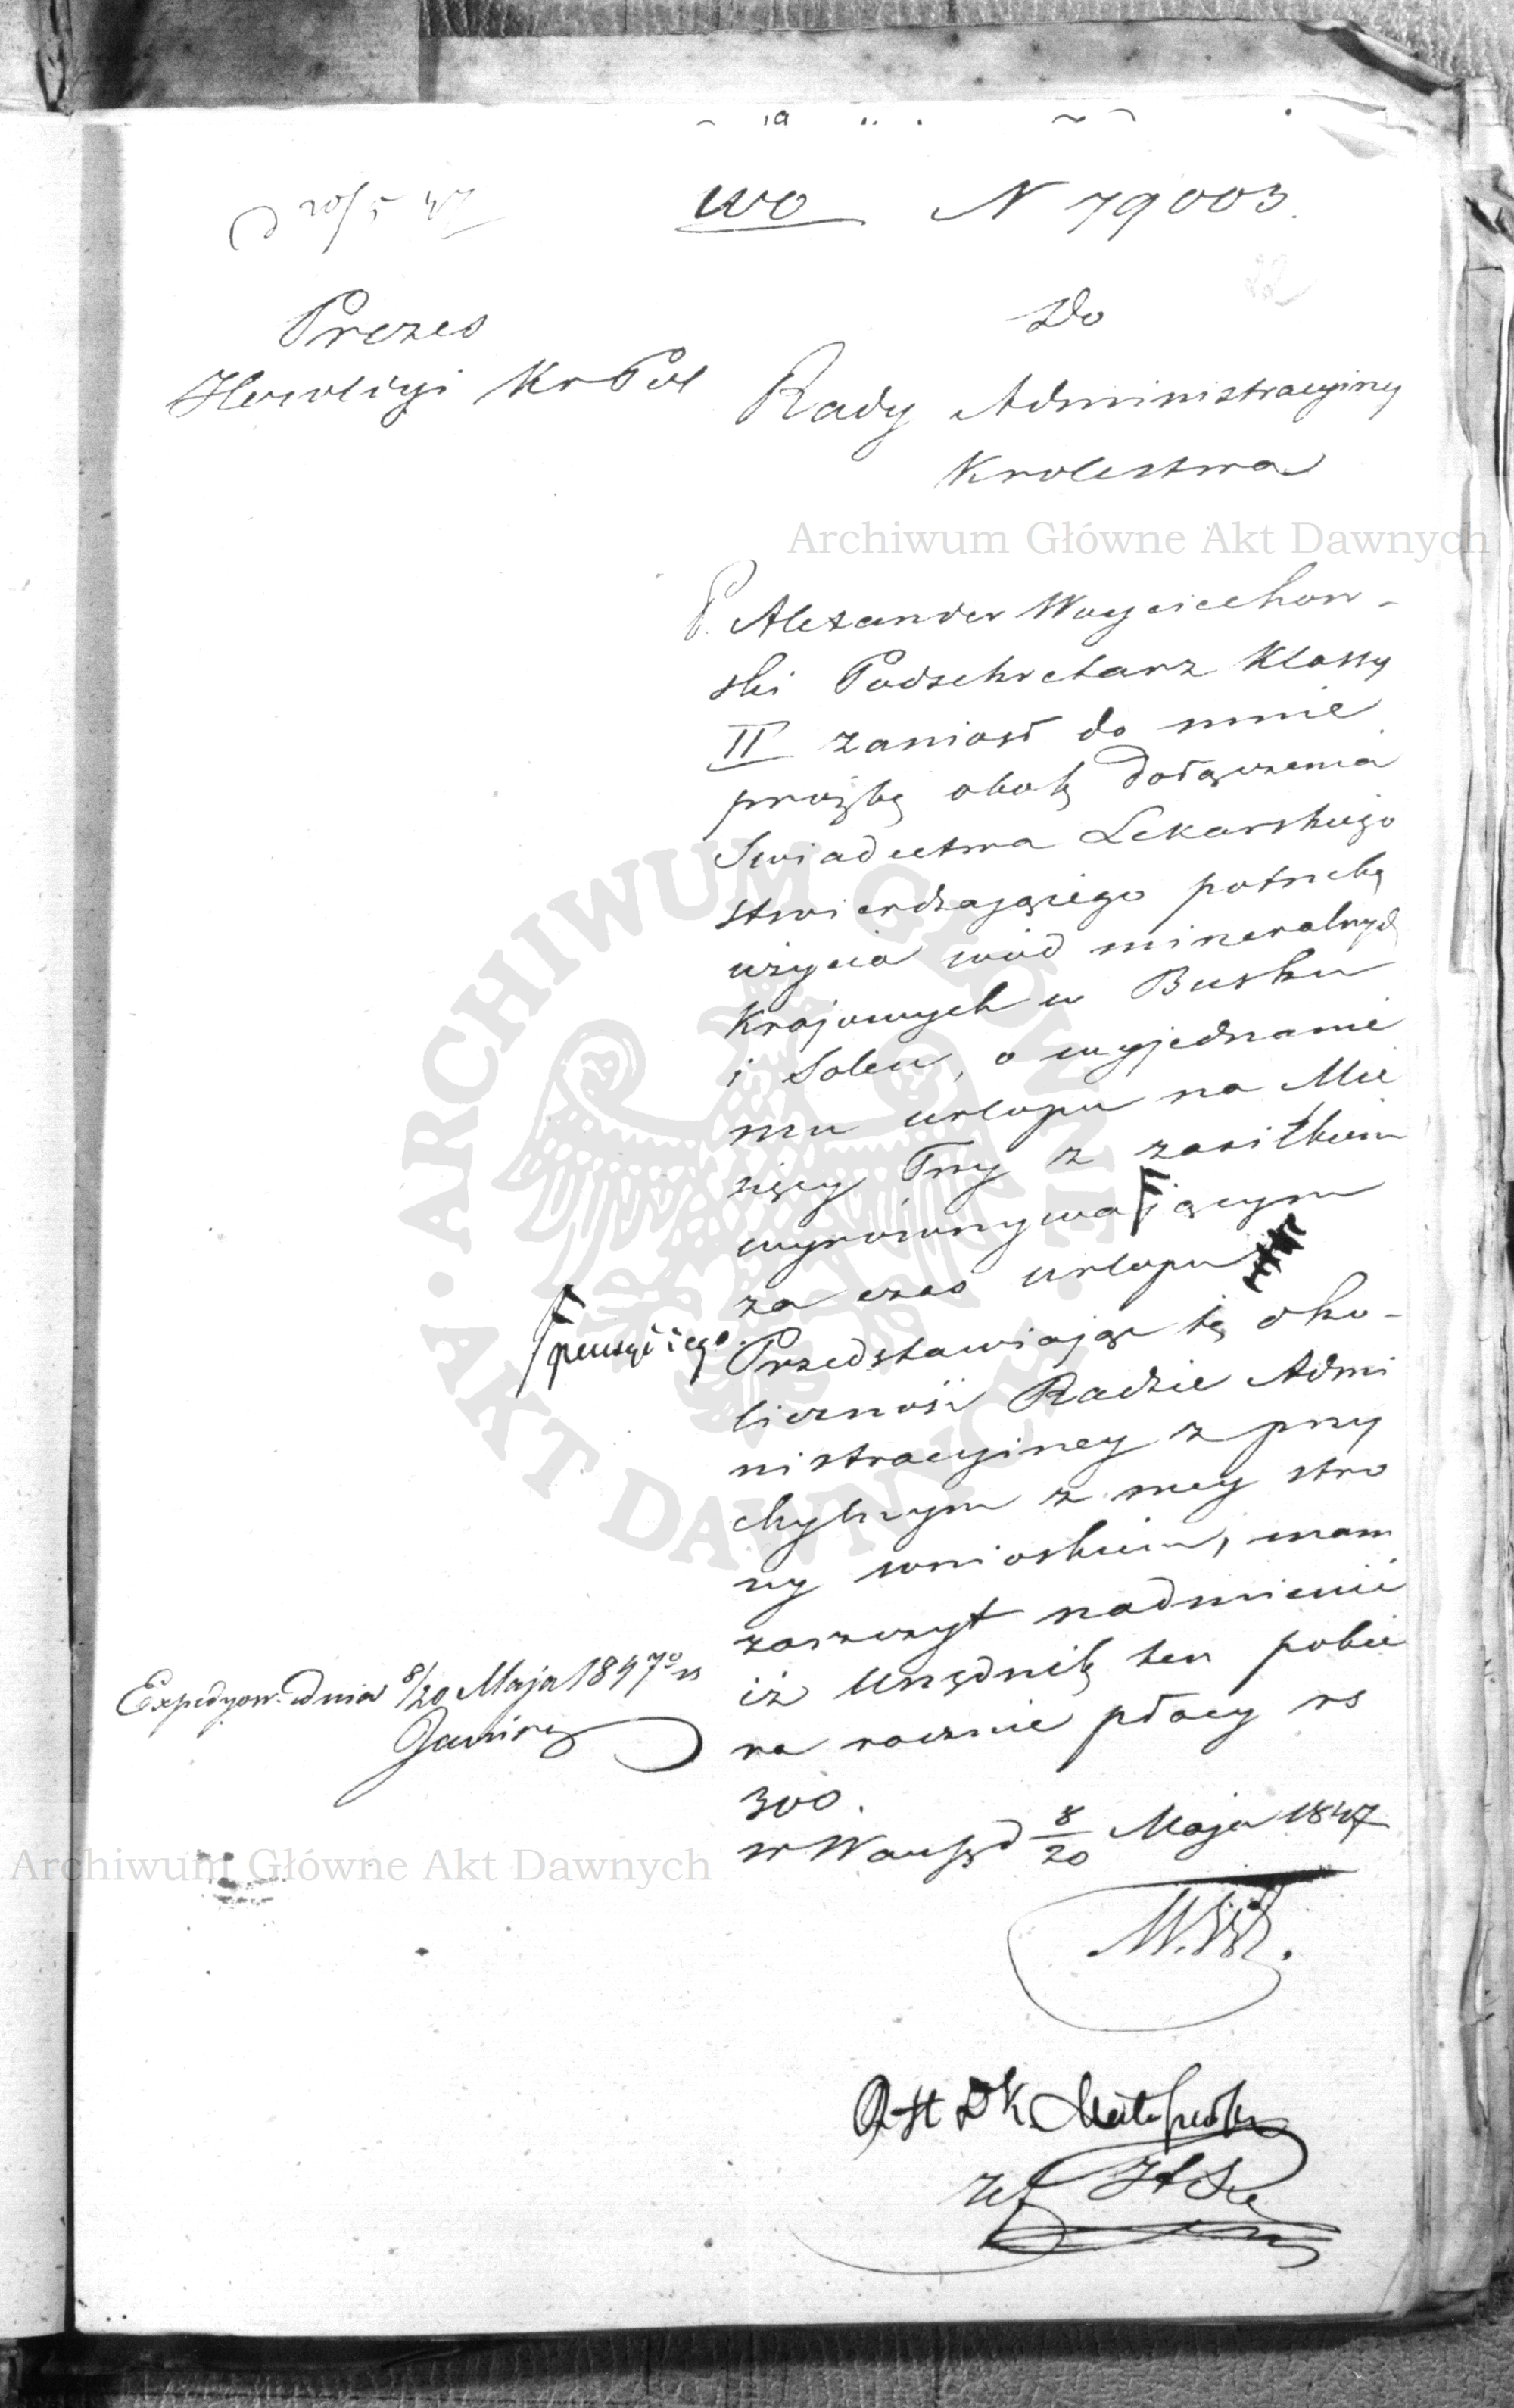 d 20/5 47
WO N 79003.
22
Prezes
Heroldyi Kr Pol
Do
Rady Administracyiney
Krolestwa
Archiwum Główne Akt Dawnych
P. Alexander Woyciechow-
ski Podsekretarz Klassy
II zaniosł do mnie
prożbę obok dołączenia
Swiadectwa Lekarskiego
stwierdzającego potrzebę
użycia wód mineralnych
Krajowych w Busku
i Solcu, o wyjednanie
mu urlopu na Mie
sięcy Trzy z zasiłkiem
wyrównywającym
pensyi iego
za czas urlopu
Przedstawiając tę oko-
liczność Radzie Admi
nistracyiney z przy
chylnym z mey stro
ny wnioskiem, mam
zaszczyt nadmienić
iż Urzędnik ten pobie
ra rocznie płacy rs
300.
w Warsz d 8/20 Maja 1847
Expedyow. dnia 8/20 Maja 1847º r
Archiwum Główne Akt Dawnych
ARCHIWUM GŁÓWNE AKT DAWNYCH